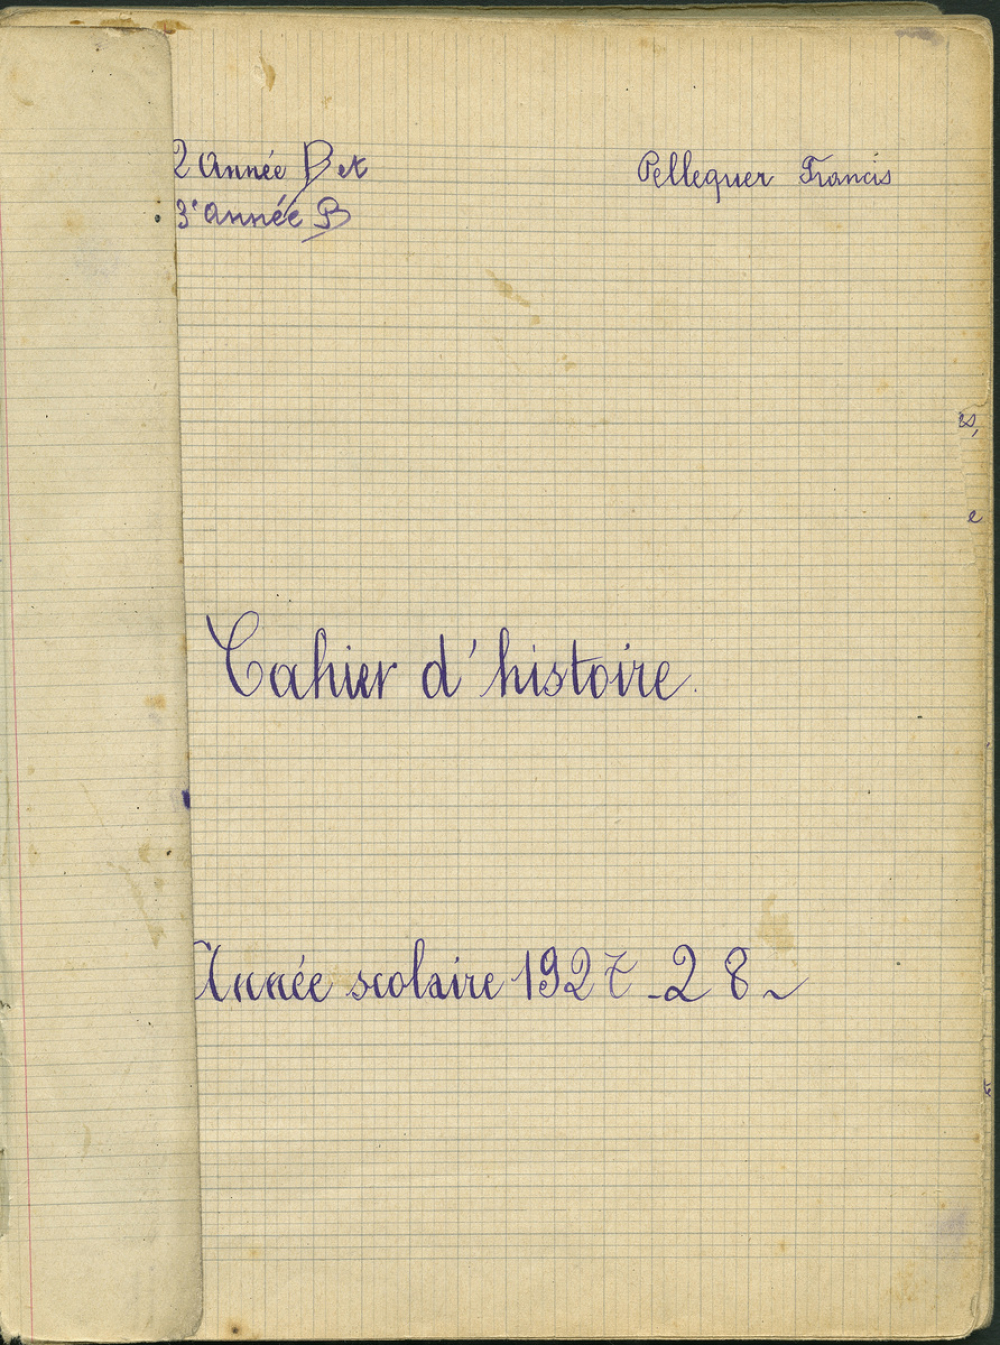 2 Année B et
Pelleguer Francis
3e année B
es,
e
Cahier d'histoire
Année scolaire 1927-28